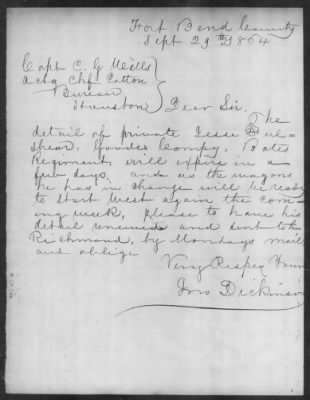 Fort Bend County
Sept 29th 1864
Capt. C. G. Wells
Actg Chf. Cotton
Bureau
Houston
Dear Sir.
The
detail of private Jesse
Compy, Bates
Regiment, will expire in a
few days. and as the wagons
he has in charge will be ready
to start West again the com-
ing week, please to have his
detail renewed and sent to
Richmond, by Mondays mail
and oblige
Very Respey Yours
Jno Dickinson